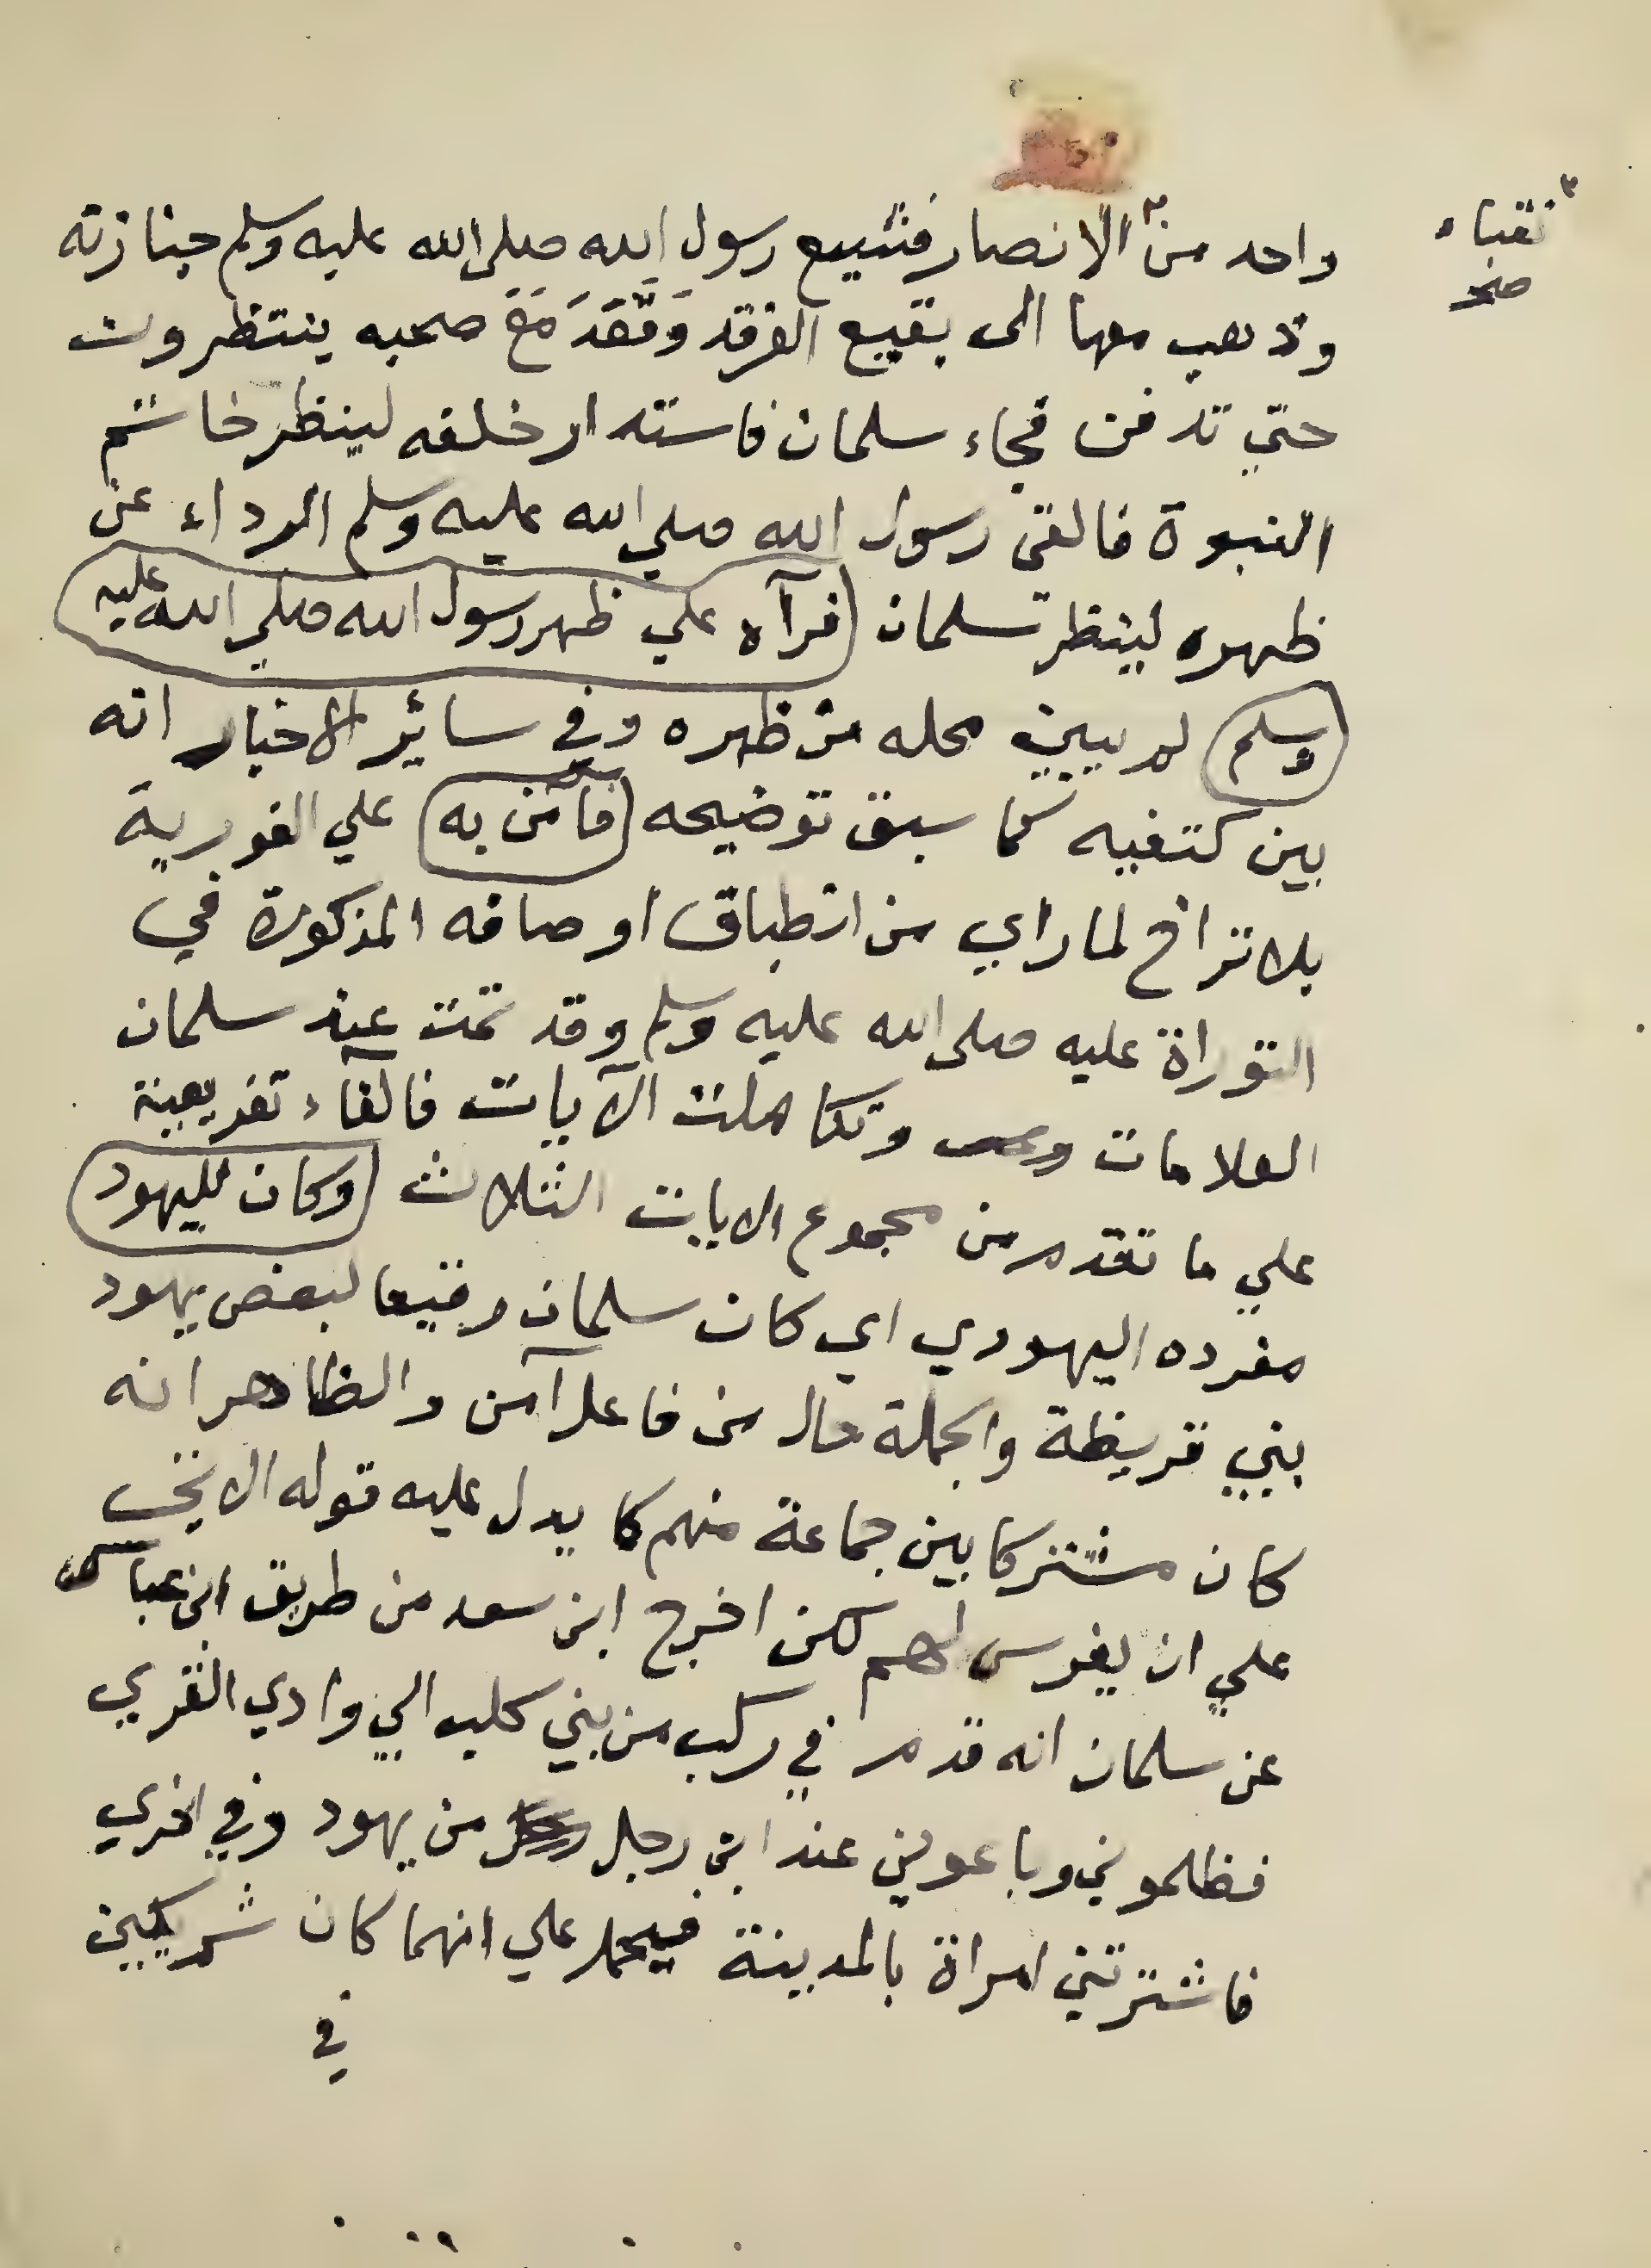 نقباء
صح
واحد من الانصار فشيع رسول الله صلى الله عليه وسلم جنازته
وذهب معها الى بقيع الغرقد وقعد مع صحبه ينتظرون
حتي تدفن فجاء سلمان فاستدار خلفه لينظر خاتم
النبوة فالقى رسول الله صلي الله عليه وسلم الرداء عن
ظهره لينظر سلمان (فرآه علي ظهر رسول الله صلي الله عليه
وسلم) لم يبين محله من ظهره وفي سائر الاخبار انه
بين كتفيه كما سبق توضيحه (فآمن به) علي الفورية
بلا تراخ لما راي من انطباق اوصافه المذكورة في
التوراة عليه صلى الله عليه وسلم وقد تمت عند سلمان
العلامات وتكاملت الآيات فالفاء تفريعية
علي ما تقدم من مجموع الايات الثلاث (وكان لليهود)
مفرده اليهودي اي كان سلمان رقيقا لبعض يهود
بني قريظة والجملة حال من فاعل آمن والظاهر انه
كان مشتركا بين جماعة منهم كما يدل عليه قوله الاتي
علي ان يغرس لهم لكن اخرج ابن سعد من طريق ابن عباس
عن سلمان انه قدم في ركب من بني كلب الي وادي القري
فظلموني وباعوني عند ابن رجل من يهود وفي اخري
فاشترتني امراة بالمدينة فيحمل علي انهما كان شريكين
في